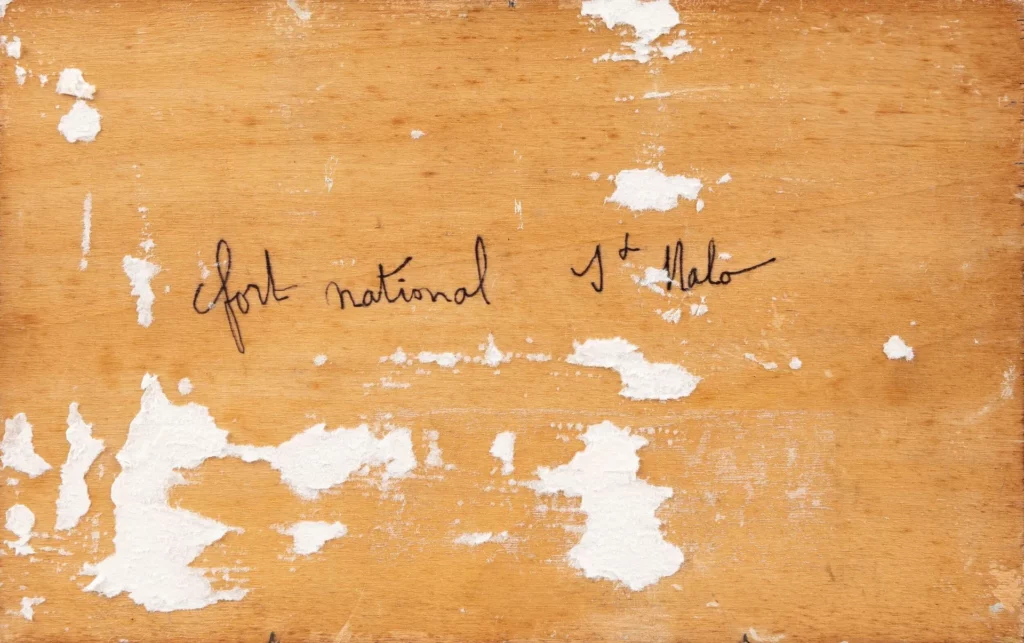 fort national St Malo